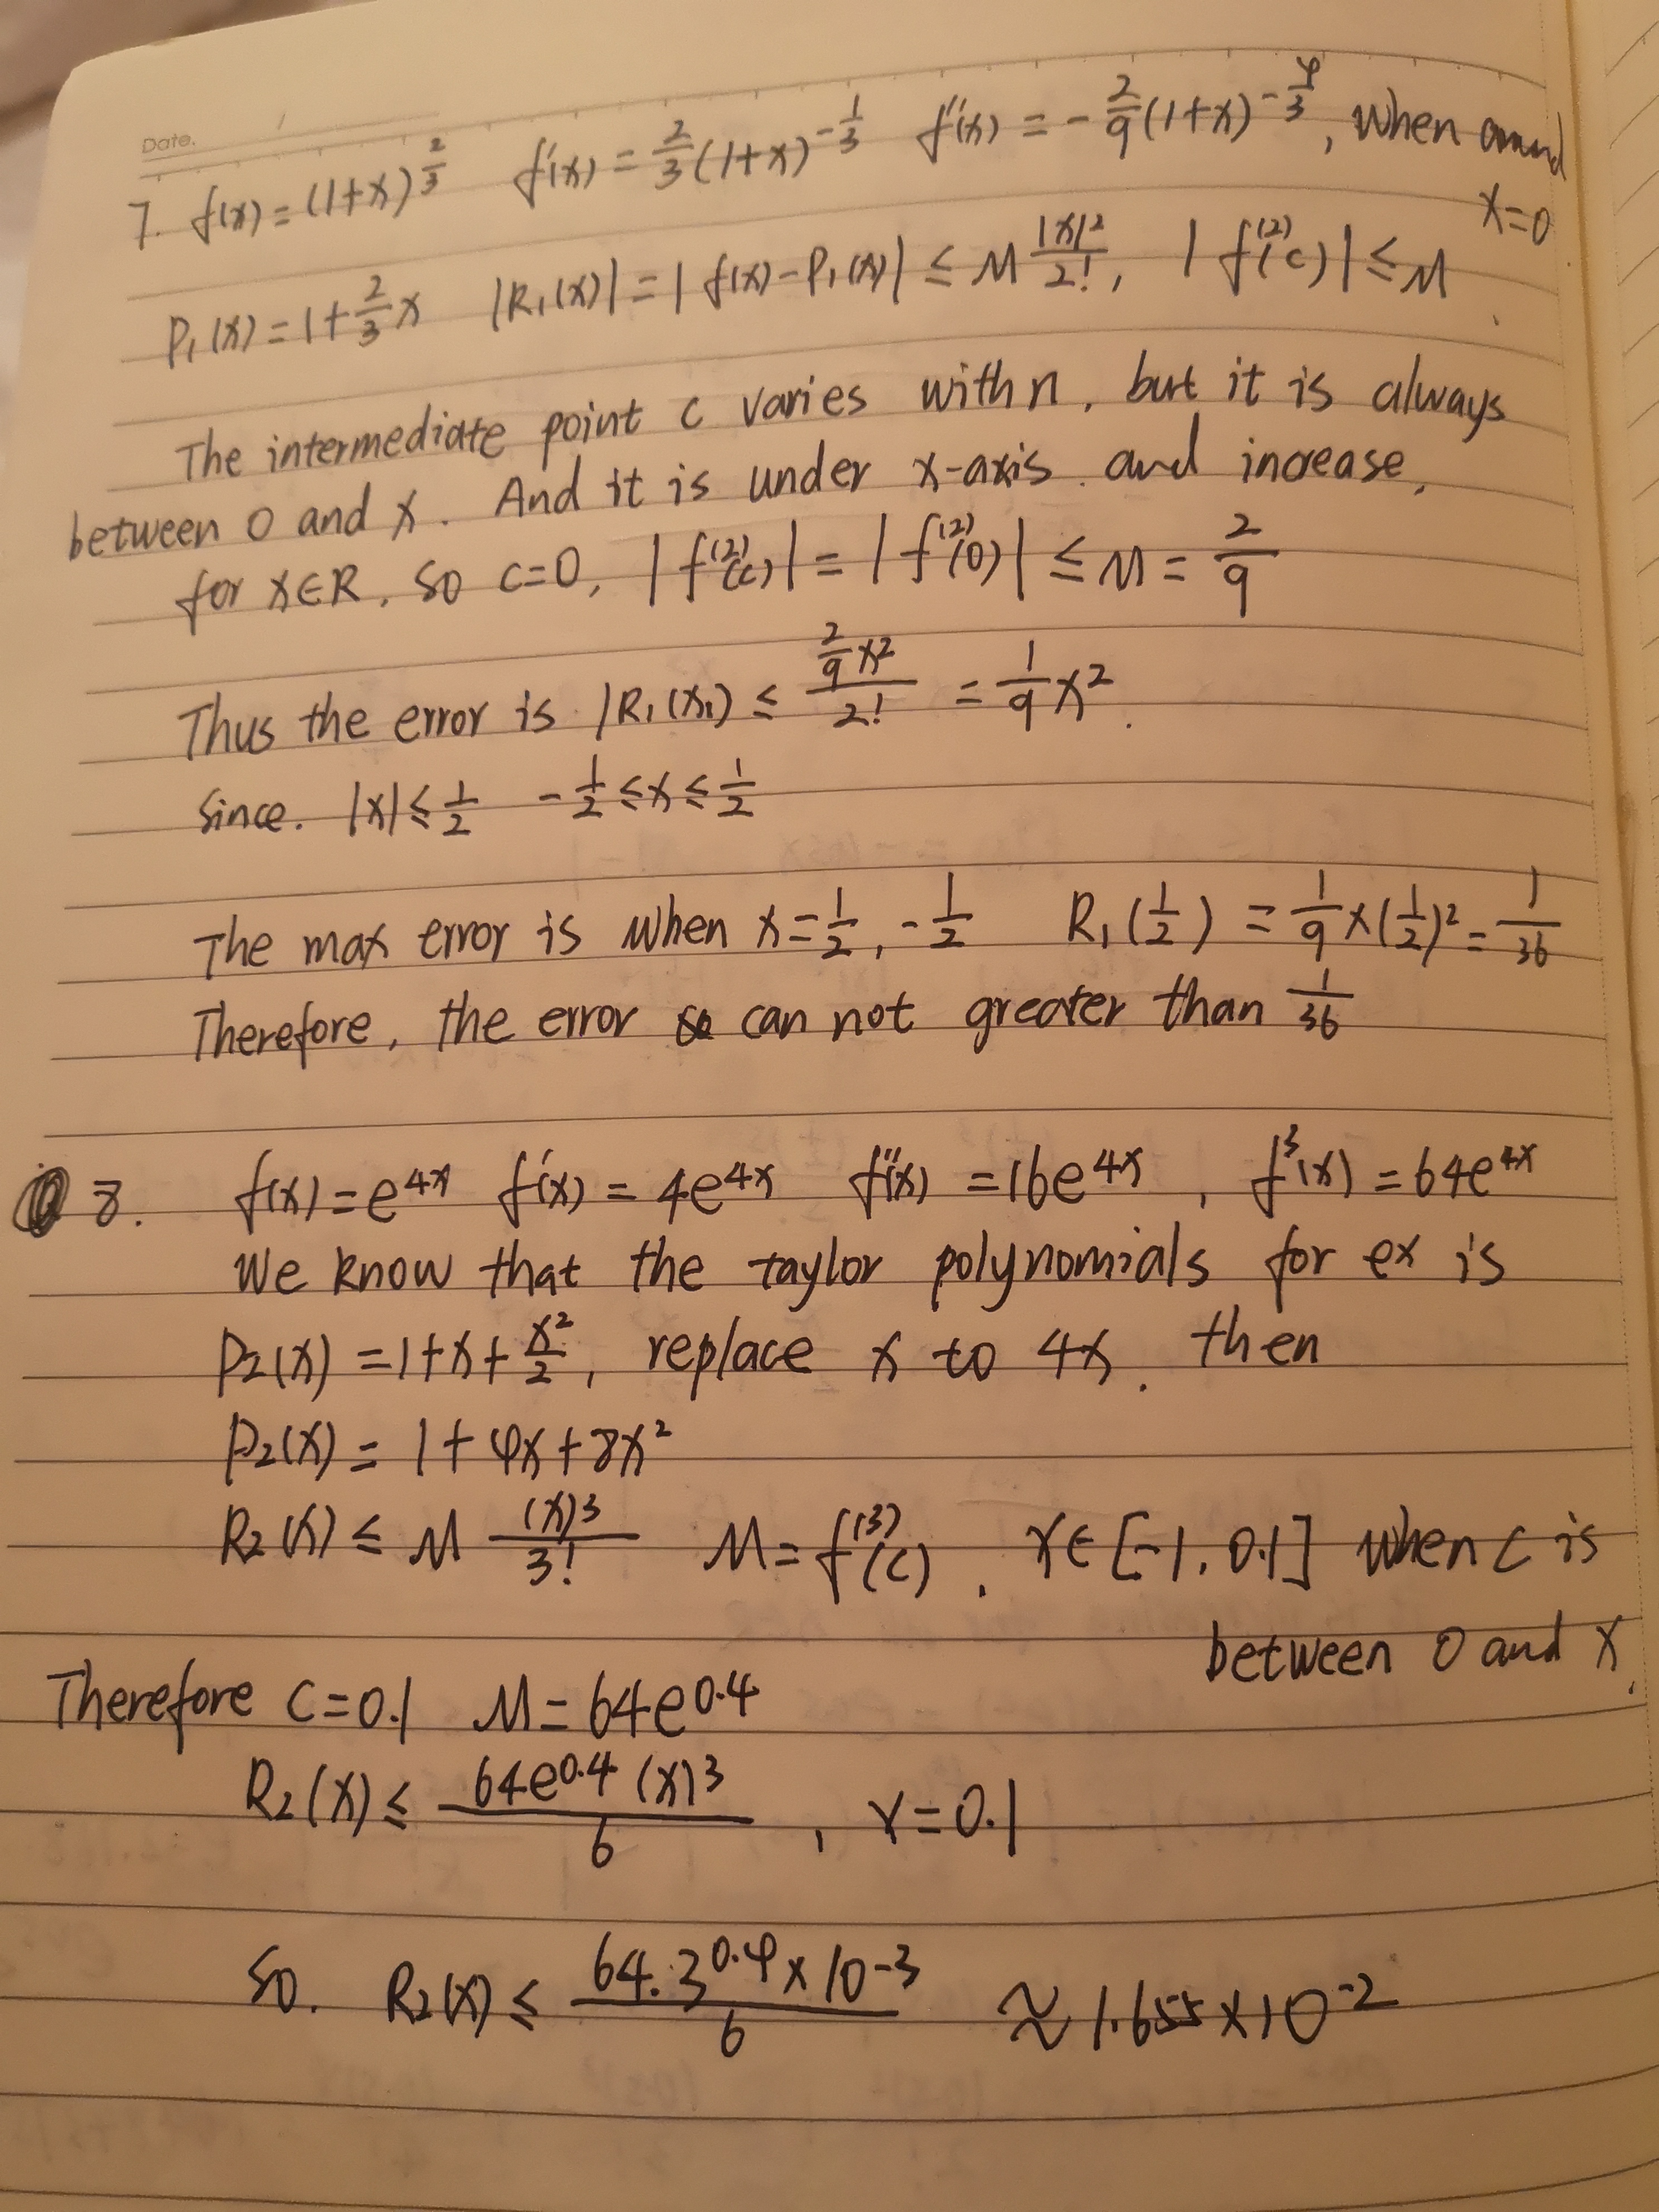 Date.
7. f(x) = (1+x)^{2/3} f'(x) = 2/3 (1+x)^{-1/3} f''(x) = -2/9 (1+x)^{-4/3}, when
x=0
P₁(x) = 1+2/3 x |R₁(x)| = |f(x)-P₁(x)| ≤ M |x|²/2!, |f^{(2)}(c)| ≤ M.
The intermediate point c varies with n, but it is always
between 0 and x. And it is under x-axis. and increase,
for x∈R, so c=0, |f^{(2)}(c)| = |f^{(2)}(0)| ≤ M = 2/9
Thus the error is |R₁(x₁) ≤ (2/9 x²)/2! = 1/9 x².
Since. |x| ≤ 1/2 -1/2 ≤ x ≤ 1/2
The max error is when x=1/2, -1/2 R₁(1/2) = 1/9 × (1/2)² = 1/36
Therefore, the error can not greater than 1/36
8. f(x) = e^{4x} f'(x) = 4e^{4x} f''(x) = 16e^{4x}, f³(x) = 64e^{4x}
We know that the taylor polynomials for ex is
P₂(x) = 1+x+x²/2, replace x to 4x. then
P₂(x) = 1+4x+8x²
R₂(x) ≤ M (x)³/3! M = f^{(3)}(c), x∈[-1, 0.1] when c is
between 0 and x.
Therefore C=0.1 M = 64e^{0.4}
R₂(x) ≤ 64e^{0.4}(x)³/6, x=0.1
So. R₂(x) ≤ 64·3^{0.4}×10^{-3}/6 ≈ 1.655×10^{-2}